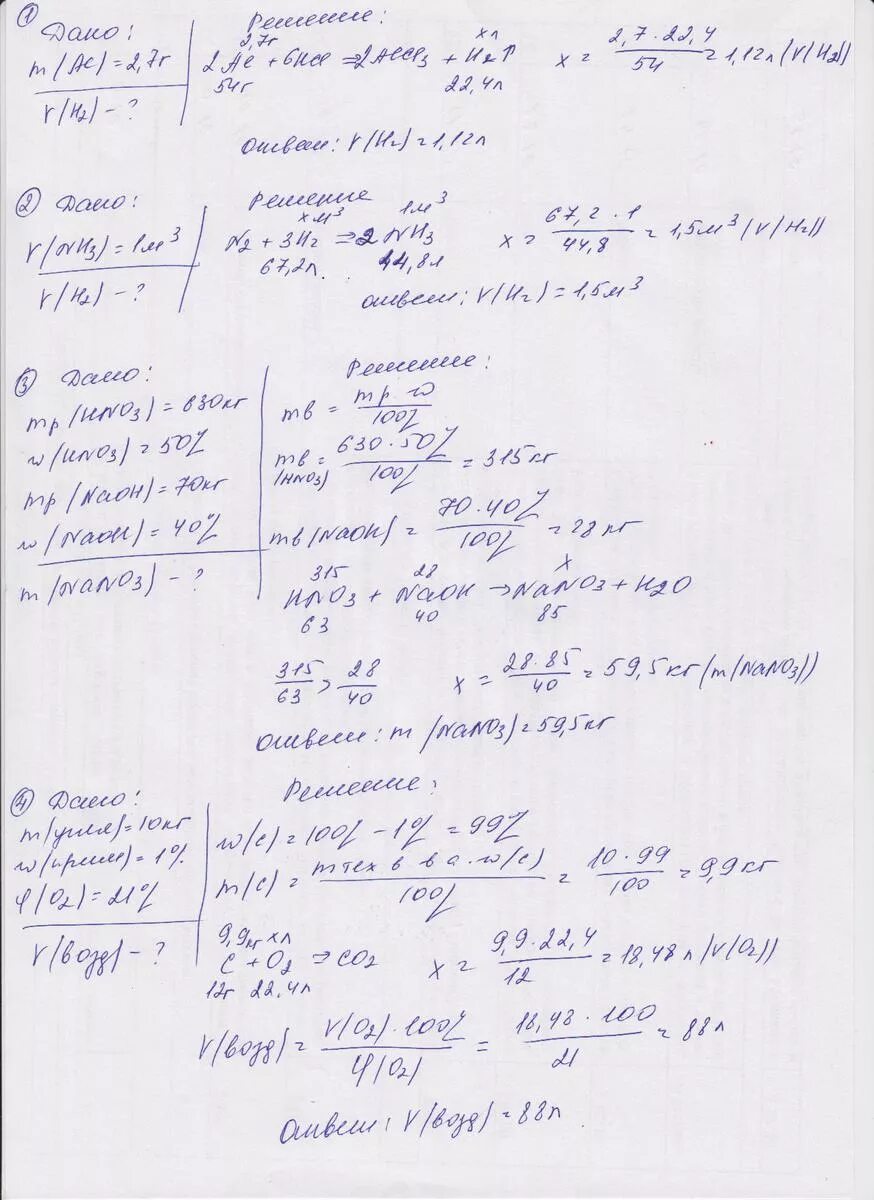 ① Дано:
m(Al) = 2,7г
V(H2) - ?
Решение:
2,7г хл
2Al + 6HCl => 2AlCl3 + H2↑
54г 22,4л
x = 2,7 · 22,4 / 54 = 1,12л (V(H2))
Ответ: V(H2) = 1,12л
② Дано:
V(NH3) = 1м³
V(H2) - ?
Решение
хм³ 1м³
N2 + 3H2 => 2NH3
67,2л. 44,8л
x = 67,2 · 1 / 44,8 = 1,5м³ (V(H2))
Ответ: V(H2) = 1,5м³
③ Дано:
mр(HNO3) = 630кг
w(HNO3) = 50%
mр(NaOH) = 70кг
w(NaOH) = 40%
m(NaNO3) - ?
Решение:
mв = mр · w / 100%
mв (HNO3) = 630 · 50% / 100% = 315кг
mв(NaOH) = 70 · 40% / 100% = 28 кг
315 28 x
HNO3 + NaOH → NaNO3 + H2O
63 40 85
315/63 > 28/40
x = 28 · 85 / 40 = 59,5кг (m(NaNO3))
Ответ: m(NaNO3) = 59,5кг
④ Дано:
m(угля) = 10кг
w(прим) = 1%
φ(O2) = 21%
V(возд) - ?
Решение:
w(C) = 100% - 1% = 99%
m(C) = mтех в ва · w(C) / 100% = 10 · 99 / 100 = 9,9кг
9,9кг хл
C + O2 => CO2
12г 22,4л
x = 9,9 · 22,4 / 12 = 18,48л (V(O2))
V(возд) = V(O2) · 100% / φ(O2) = 18,48 · 100 / 21 = 88л
Ответ: V(возд) = 88л